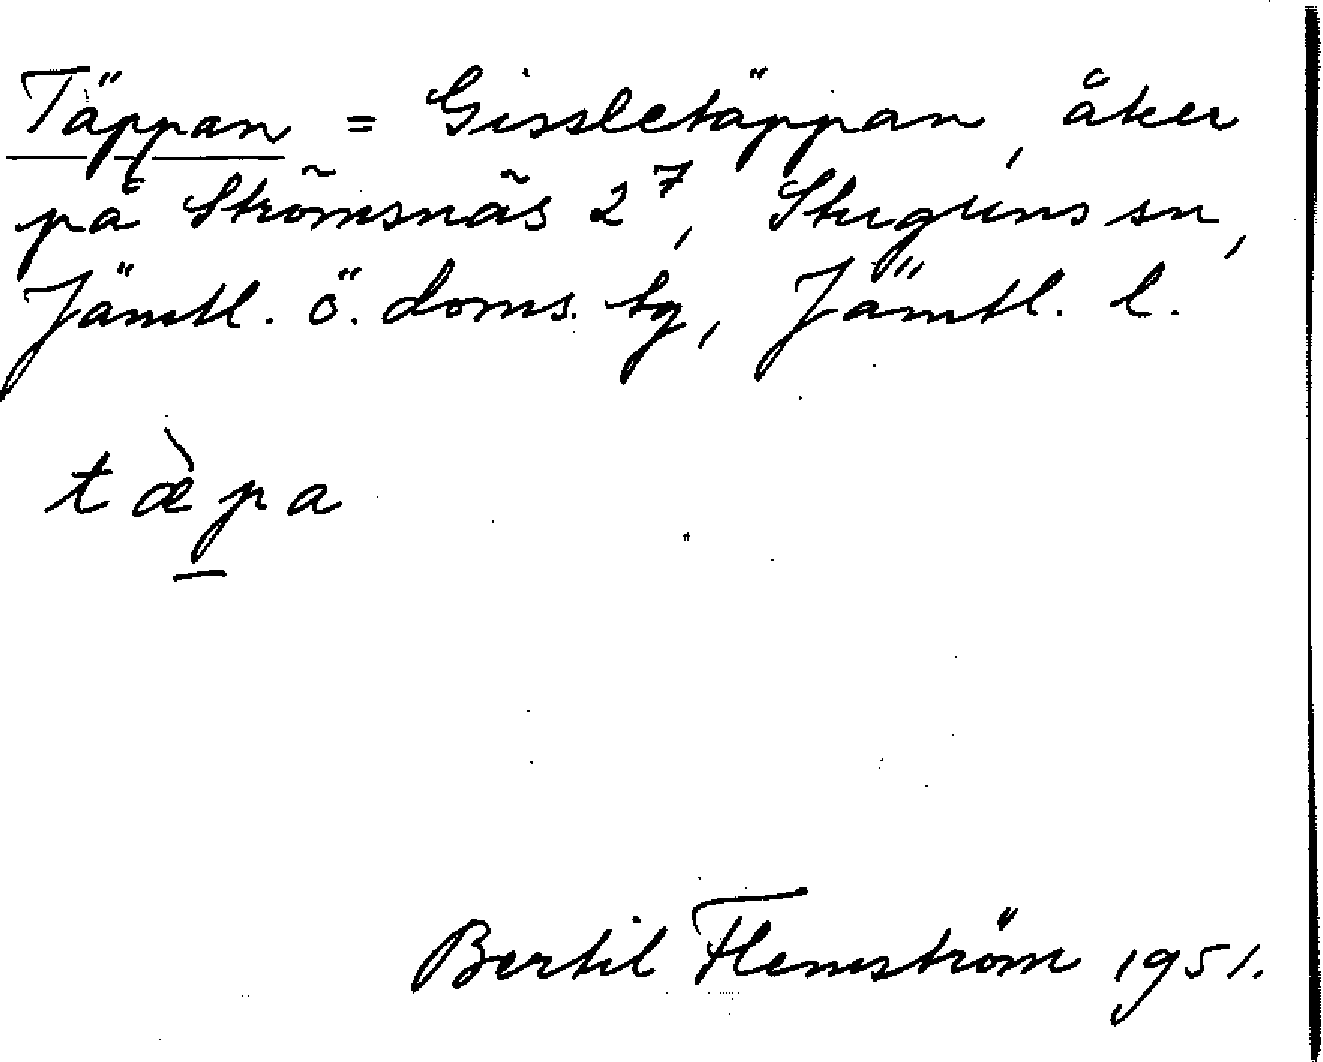 Täppan = Gissletäppan, åker
på Strömsnäs 2⁷, Stuguns sn,
Jämtl. ö. doms. tg, Jämtl. l.
tæ̀p̠a
Bertil Flemström 1951.